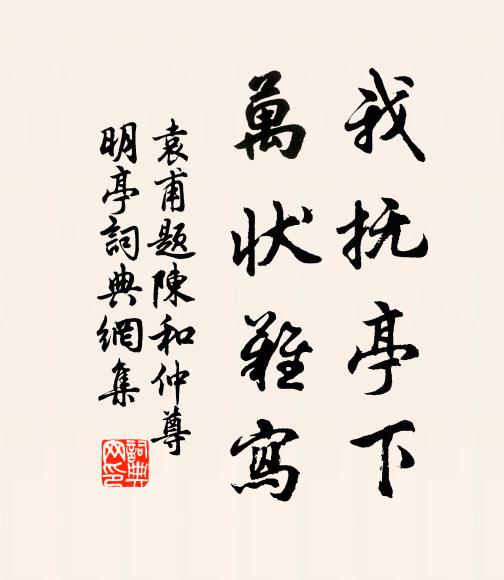 我抚亭下
萬狀難寫
袁甫題陳和仲尊
明亭詞典網集
詞典
网印